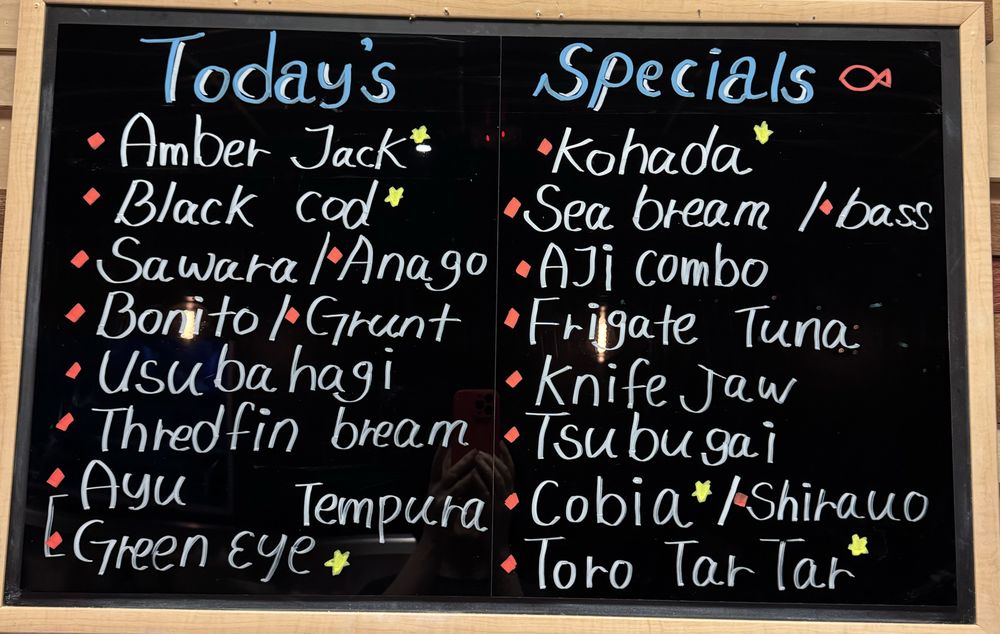 Today's Specials
Amber Jack
Black cod
Sawara / Anago
Bonito / Grunt
Usubahagi
Thredfin bream
Ayu
Tempura
Green Eye
Kohada
Sea bream / bass
AJi combo
Frigate Tuna
Knife Jaw
Tsubugai
Cobia / Shirauo
Toro Tar Tar